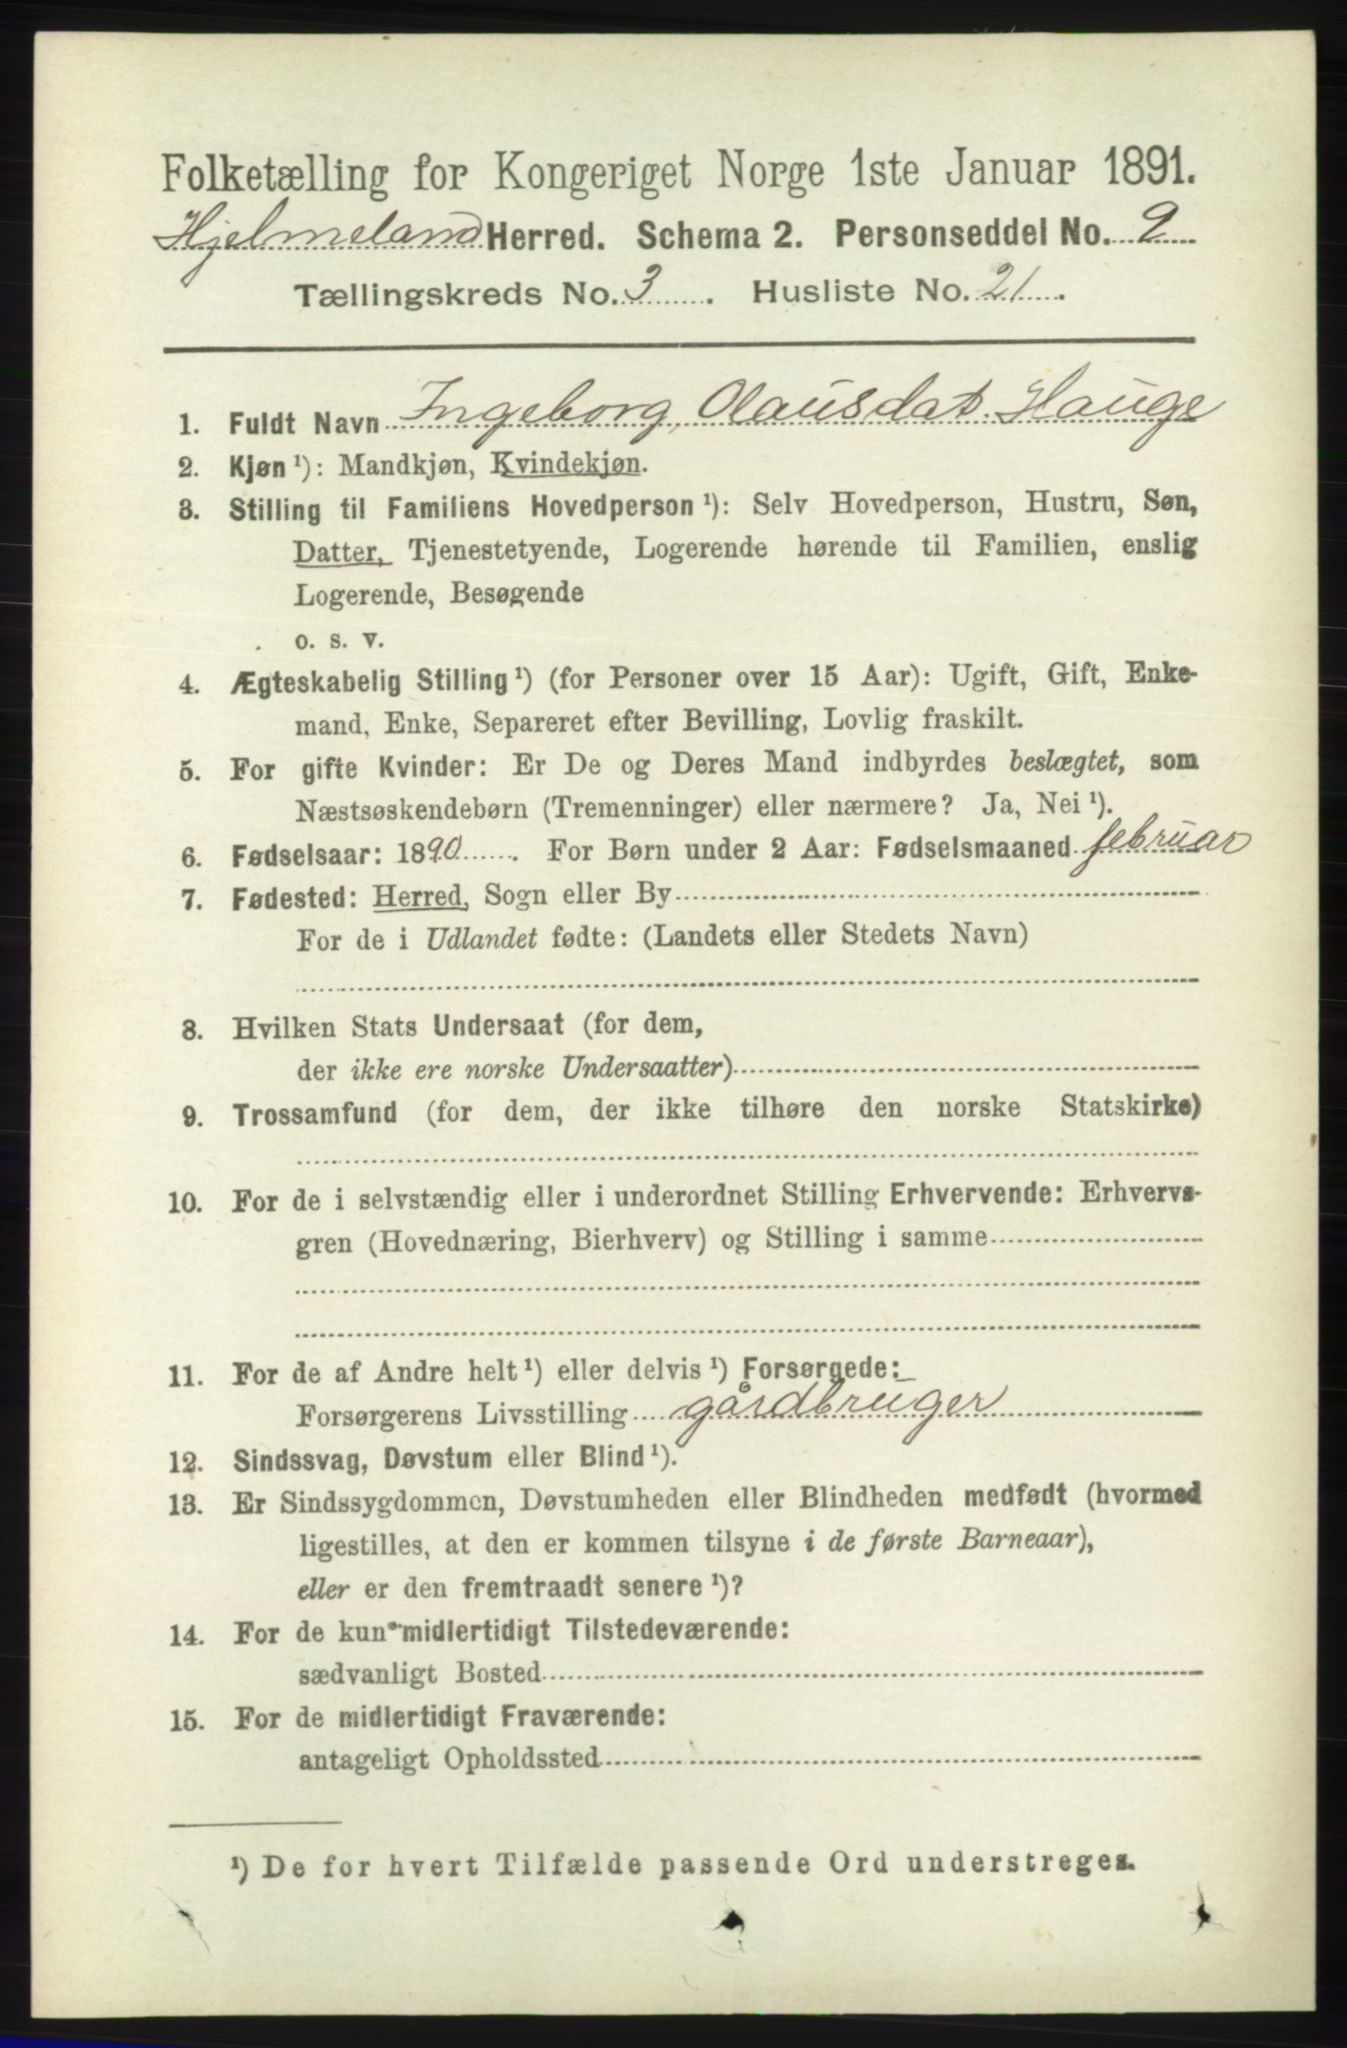 Folketælling for Kongeriget Norge 1ste Januar 1891.
Hjelmeland Herred. Schema 2. Personseddel No. 9
Tællingskreds No. 3. Husliste No. 21.
1. Fuldt Navn Ingeborg Olausdat. Hauge
2. Kjøn ¹): Mandkjøn, Kvindekjøn.
3. Stilling til Familiens Hovedperson ¹): Selv Hovedperson, Hustru, Søn,
Datter, Tjenestetyende, Logerende hørende til Familien, enslig
Logerende, Besøgende
o. s. v.
4. Ægteskabelig Stilling ¹) (for Personer over 15 Aar): Ugift, Gift, Enke-
mand, Enke, Separeret efter Bevilling, Lovlig fraskilt.
5. For gifte Kvinder: Er De og Deres Mand indbyrdes beslægtet, som
Næstsøskendebørn (Tremenninger) eller nærmere? Ja, Nei ¹).
6. Fødselsaar: 1890. For Børn under 2 Aar: Fødselsmaaned februar
7. Fødested: Herred, Sogn eller By
For de i Udlandet fødte: (Landets eller Stedets Navn)
8. Hvilken Stats Undersaat (for dem,
der ikke ere norske Undersaatter)
9. Trossamfund (for dem, der ikke tilhøre den norske Statskirke)
10. For de i selvstændig eller i underordnet Stilling Erhvervende: Erhvervs-
gren (Hovednæring, Bierhverv) og Stilling i samme
11. For de af Andre helt ¹) eller delvis ¹) Forsørgede:
Forsørgerens Livsstilling gårdbruger
12. Sindssvag, Døvstum eller Blind ¹).
13. Er Sindssygdommen, Døvstumheden eller Blindheden medfødt (hvormed
ligestilles, at den er kommen tilsyne i de første Barneaar),
eller er den fremtraadt senere ¹)?
14. For de kun midlertidigt Tilstedeværende:
sædvanligt Bosted
15. For de midlertidigt Fraværende:
antageligt Opholdssted
¹) De for hvert Tilfælde passende Ord understreges.